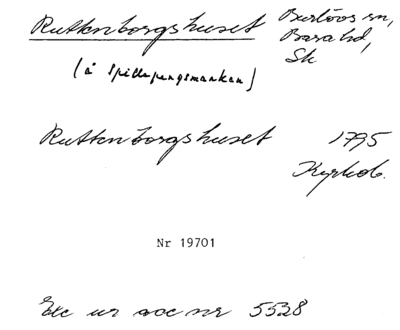 Ruttenborgshuset Burlövs sn,
Bara hd,
(å Spillepengsmarkan) Sk
Ruttenborgshuset 1795
Kyrkob.
Nr 19701
Exc ur acc nr 5528